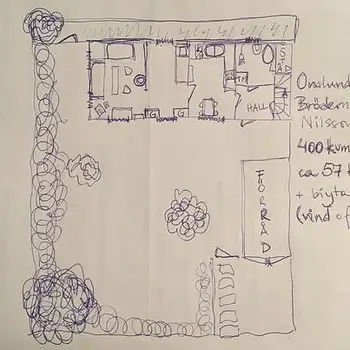 STÄD
TM
HALL
FÖRRÅD
Onslund
Brödern
Nilsso
400 kum
ca 57
+ biyta
(vind of